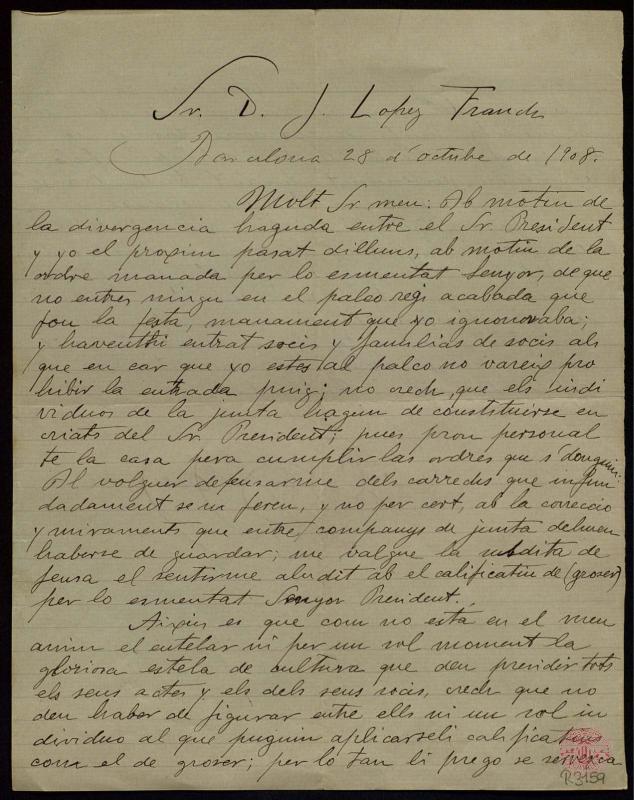 Sr. D. J. Lopez Franch
Barcelona 28 d'octubre de 1908.
Molt Sr meu: Ab motiu de
la divergencia haguda entre el Sr President
y yo el proxim pasat dilluns, ab motiu de la
ordre manada per lo esmentat Senyor, de que
no entres ningu en el palco regi acabada que
fou la festa, manament que yo ignonoraba;
y haventhi entrat socis y familias de socis als
que en car que yo estes al palco no vareig pro
hibir la entrada puig; no crech que els indi
viduos de la junta hagin de constituirse en
criats del Sr. President; pues prou personal
te la casa pera cumplir las ordres que s'donguin:
Al volguer defensarme dels carrechs que infun
dadament se'm feren, y no per cert, ab la correccio
y miraments que entre companys de junta deben
haberse de guardar; me valgue la subdita de
fensa el sentirme aludit ab el calificatiu de (groser)
per lo esmentat Senyor President.
Aixis es que com no está en el meu
anim el entelar ni per un sol moment la
gloriosa estela de cultura que deu presidir tots
els seus actes y els dels seus socis, crech que no
deu haber de figurar entre ells ni un sol in
dividuo al que puguin aplicarseli calificatius
com el de groser; per lo tan li prego se serveixa
R3159